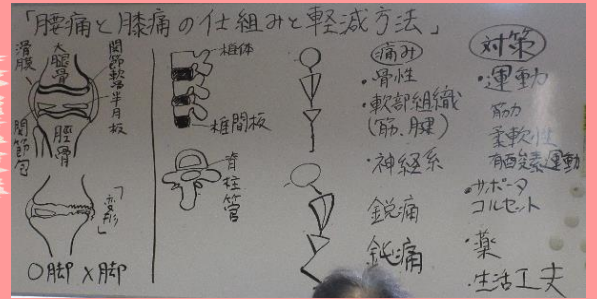 「腰痛と膝痛の仕組みと軽減方法」
滑膜
大腿骨
関節軟骨
半月板
関節包
脛骨
「変形」
O脚 X脚
椎体
椎間板
脊柱管
痛み
・骨性
・軟部組織
(筋、腱)
・神経系
鋭痛
鈍痛
対策
・運動
筋力
柔軟性
有酸素運動
・サポータ
コルセット
・薬
・生活工夫